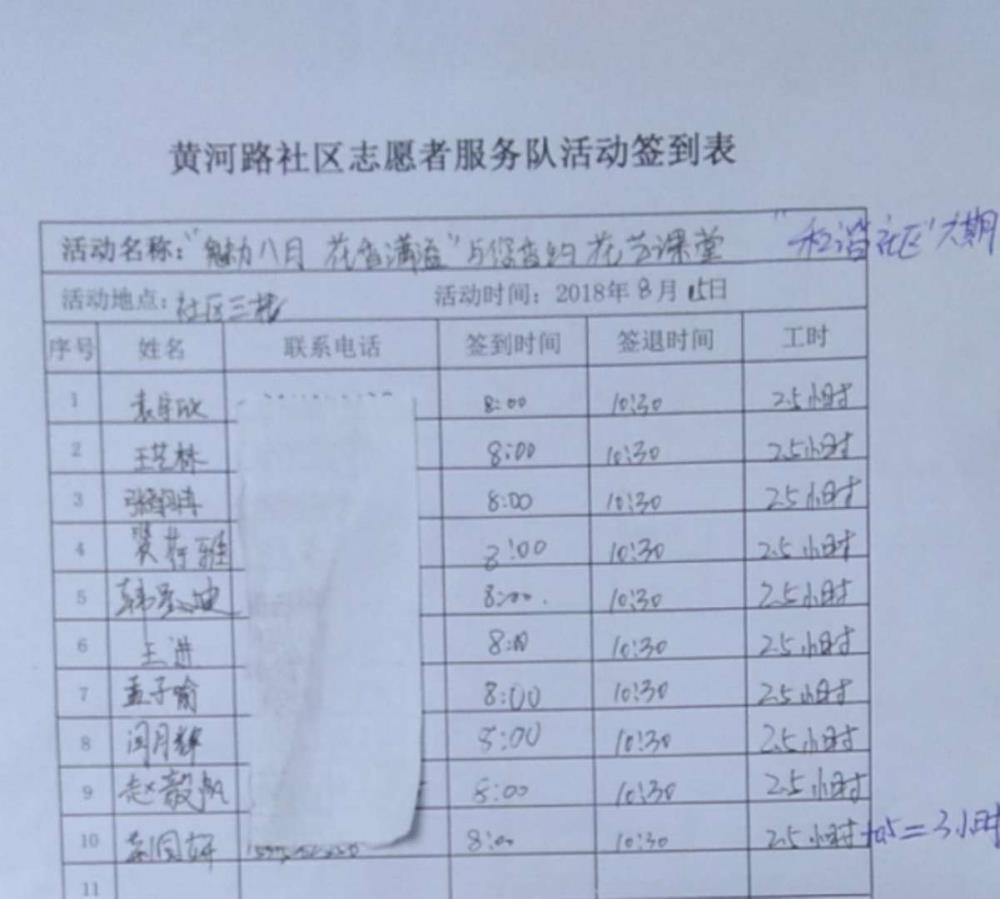 黄河路社区志愿者服务队活动签到表
活动名称:"魅力八月 花香满溢"与您有约 花艺课堂 "和谐社区"六期
活动地点:社区三楼 活动时间:2018年8月15日
序号 姓名 联系电话 签到时间 签退时间 工时
1 8:00 10:30 2.5小时
2 王艺林 8:00 10:30 2.5小时
3 8:00 10:30 2.5小时
4 8:00 10:30 2.5小时
5 8:00. 10:30 2.5小时
6 王进 8:00 10:30 2.5小时
7 孟子喻 8:00 10:30 2.5小时
8 闫月 8:00 10:30 2.5小时
9 赵毅帆 8:00 10:30 2.5小时
10 8:00 10:30 2.5小时+0.5=3小时
11